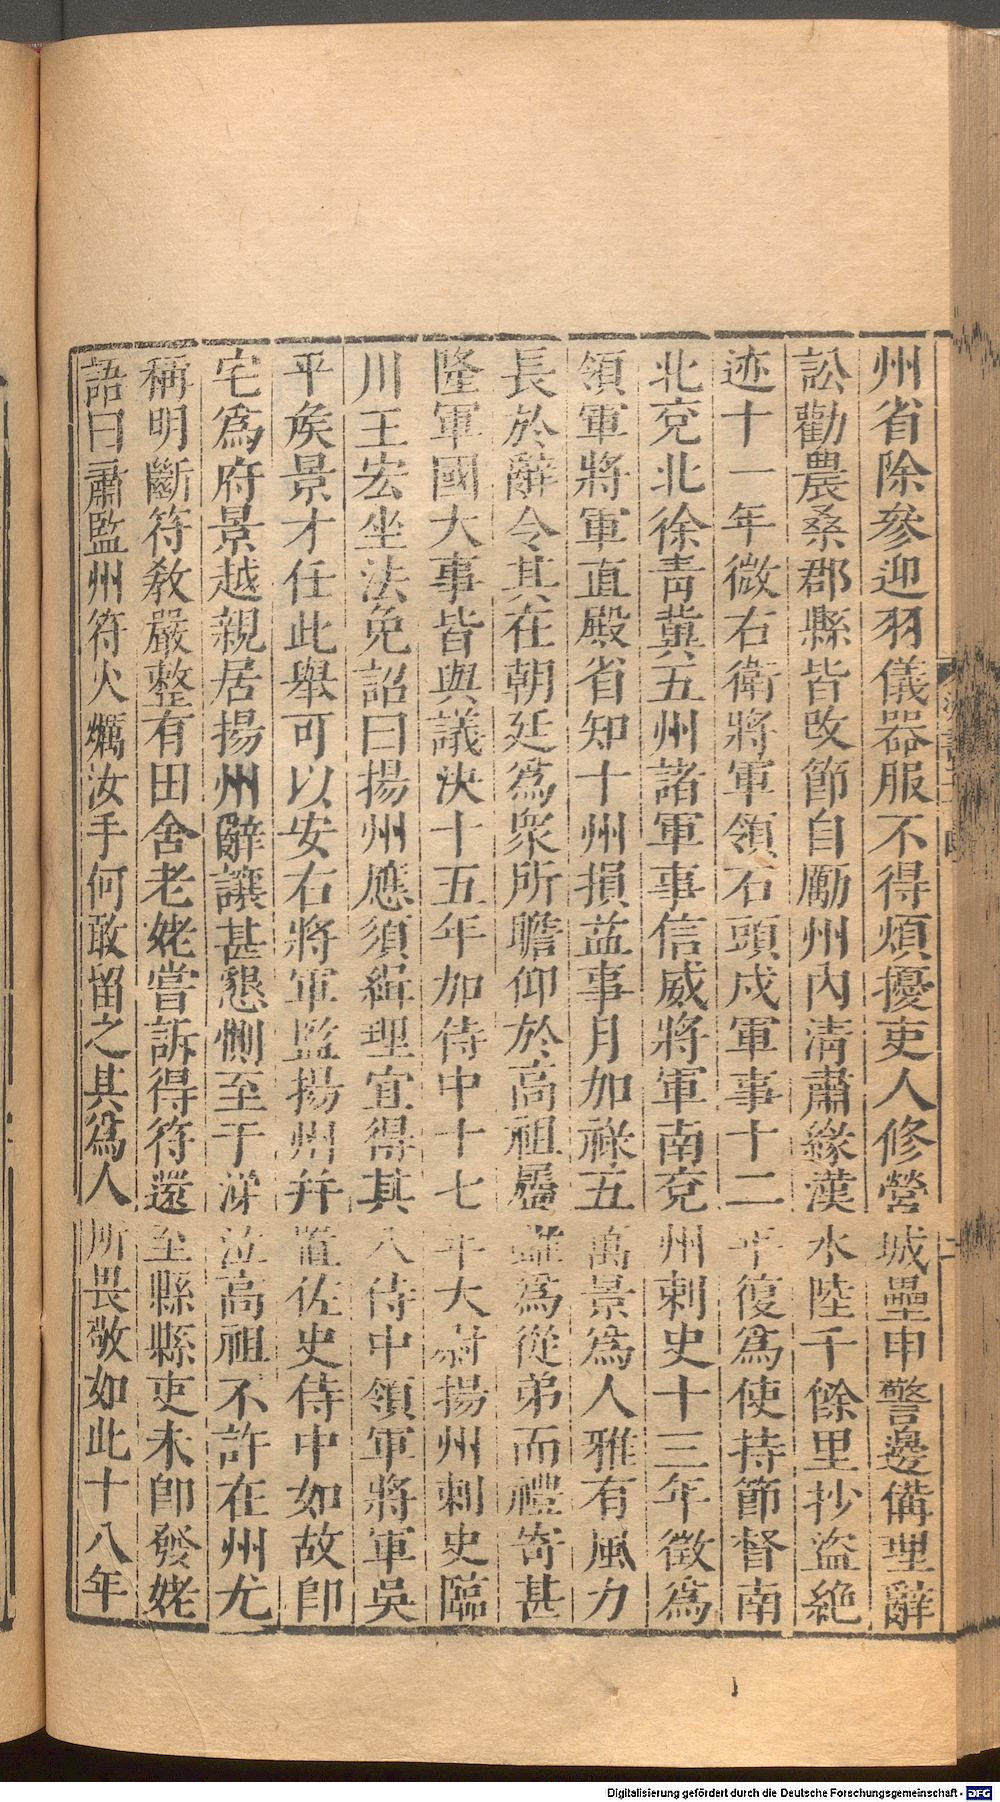 州省除參迎羽儀器服不得煩擾吏人修營城壘申警邊備理辭
訟勸農桑郡縣皆改節自勵州內清肅緣漢水陸千餘里抄盜絕
迹十一年徵右衛將軍領石頭戍軍事十二年復爲使持節督南
北兗北徐靑冀五州諸軍事信威將軍南兗州刺史十三年徵爲
領軍將軍直殿省知十州損益事月加祿五萬景爲人雅有風力
長於辭令其在朝廷爲衆所瞻仰於高祖屬雖爲從弟而禮寄甚
隆軍國大事皆與議決十五年加侍中十七年太尉揚州刺史臨
川王宏坐法免詔曰揚州應須緝理宜得其人侍中領軍將軍吳
平矦景才任此舉可以安右將軍監揚州幷置佐史侍中如故卽
宅爲府景越親居揚州辭讓甚懇惻至于涕泣高祖不許在州尤
稱明斷符教嚴整有田舍老姥嘗訴得符還至縣縣吏未卽發姥
語曰蕭監州符火爄汝手何敢留之其爲人所畏敬如此十八年
Digitalisierung gefördert durch die Deutsche Forschungsgemeinschaft - DFG